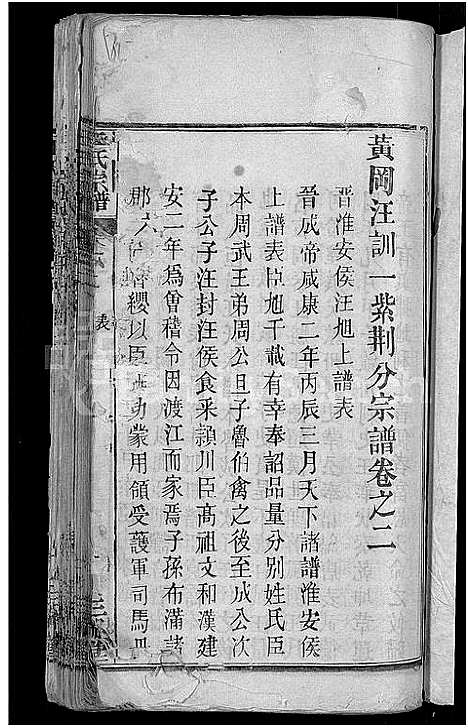 黃岡汪訓一紫荆分宗譜卷之二
晉淮安侯汪旭上譜表
晉成帝咸康二年丙辰三月天下諸譜淮安侯
上譜表臣旭千載有幸奉詔品量分别姓氏臣
本周武王弟周公旦子魯伯禽之後至成公次
子公子汪封汪侯食采潁川臣高祖文和漢建
安二年爲會稽令因渡江而家焉子孫布滿諸
郡六 纓以臣 功蒙用領受護軍司馬丹
氏宗譜
表